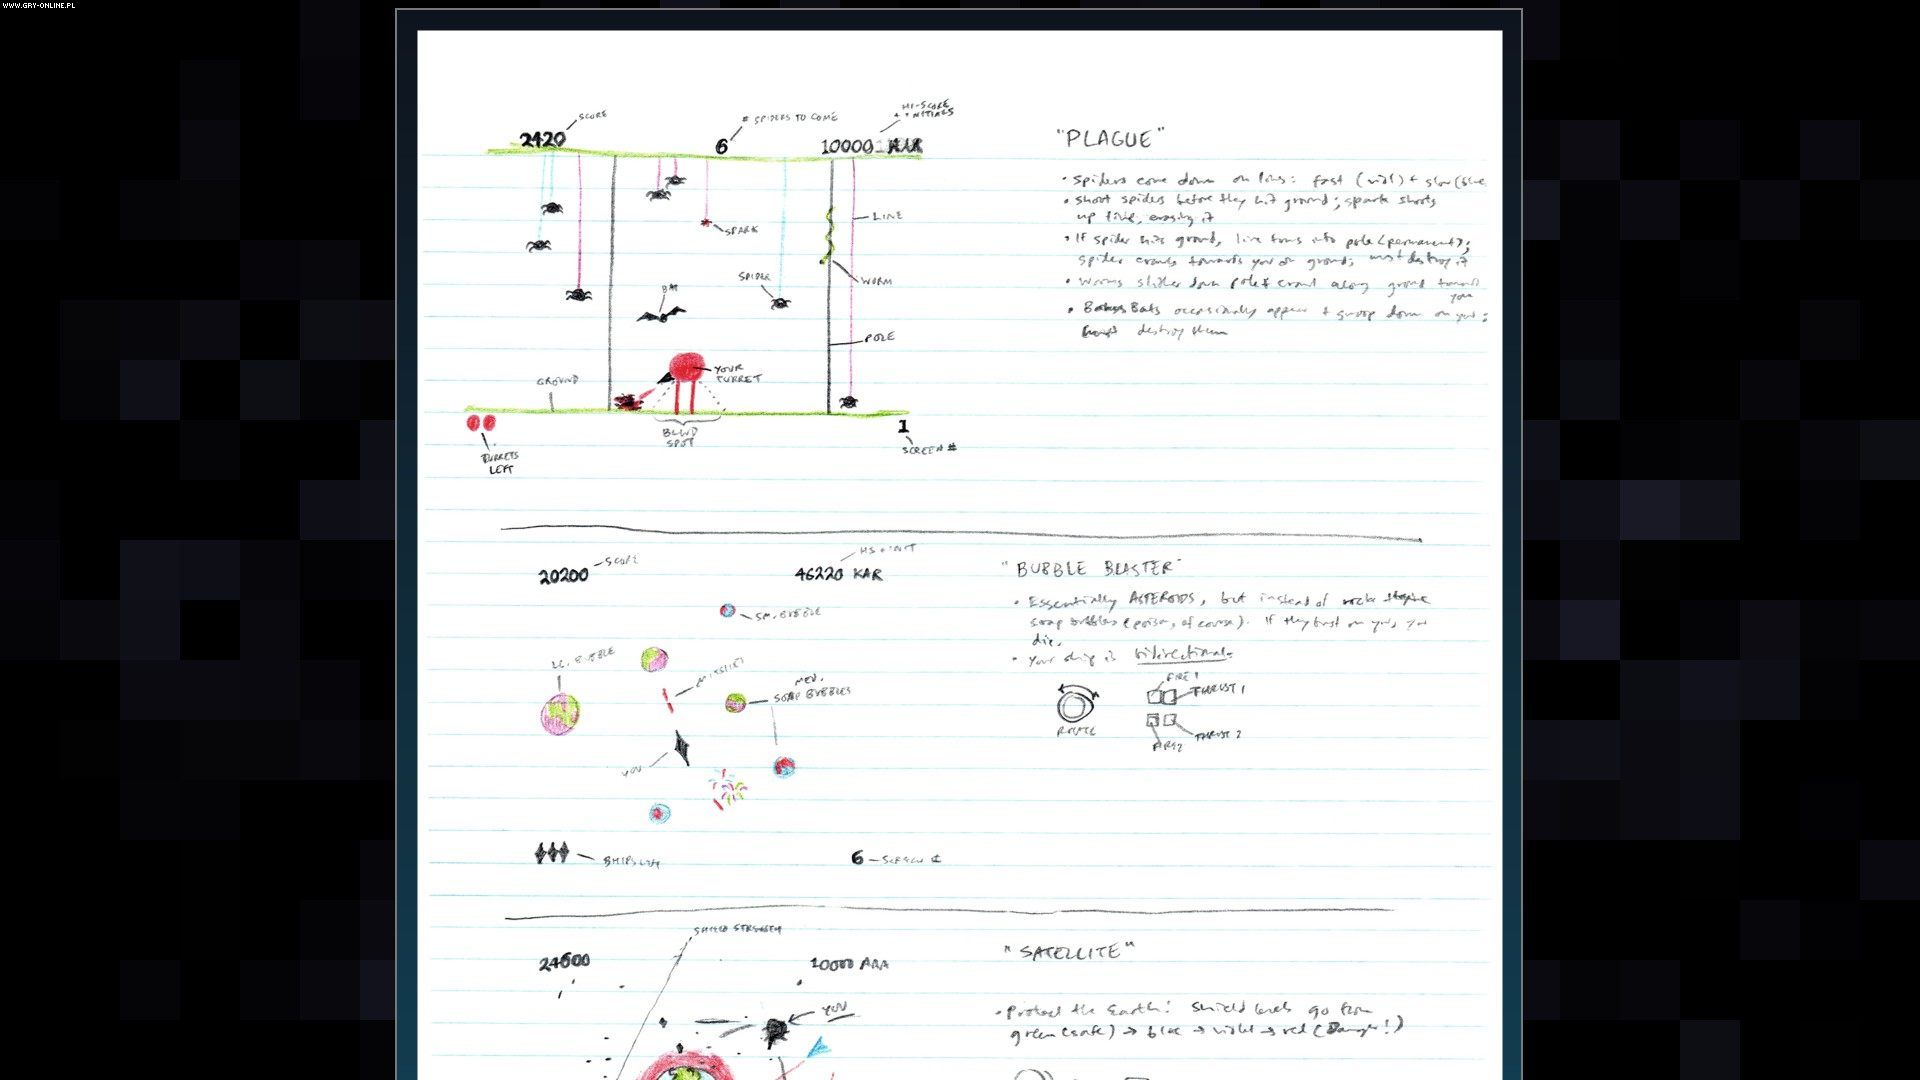 WWW.GRY-ONLINE.PL
SCORE
# SPIDERS TO COME
HI-SCORE
+ INITIALS
2420
6
10000
"PLAGUE"
• Spiders come down on lines: fast (viol) + slow (blue
• Shoot spiders before they hit ground; spark shoots
up line, erasing it
• If spider hits ground, line turns into pole (permanent);
spider crawls towards you on ground; must destroy it
• Worms slither down pole & crawl along ground toward
you
• Bats occasionally appear + swoop down on you:
must destroy them
LINE
SPARK
SPIDER
WORM
BAT
POLE
YOUR
TURRET
GROUND
BLIND
SPOT
1
SCREEN #
TURRETS
LEFT
SCORE
HS + INIT
20200
46220 KAR
"BUBBLE BLASTER"
• Essentially ASTEROIDS, but instead of rocks
soap bubbles (poison, of course). If they burst on you, you
die.
• Your ship is bidirectional.
SM. BUBBLE
LG. BUBBLE
MISSILE
MED.
SOAP BUBBLES
YOU
FIRE 1
THRUST 1
ROTATE
FIRE 2
THRUST 2
SHIPS LEFT
6 – SCREEN #
SHIELD STRENGTH
24600
10000 AAA
"SATELLITE"
YOU
• Protect the Earth! Shield levels go from
green (safe) → blue → violet → red (Danger!)